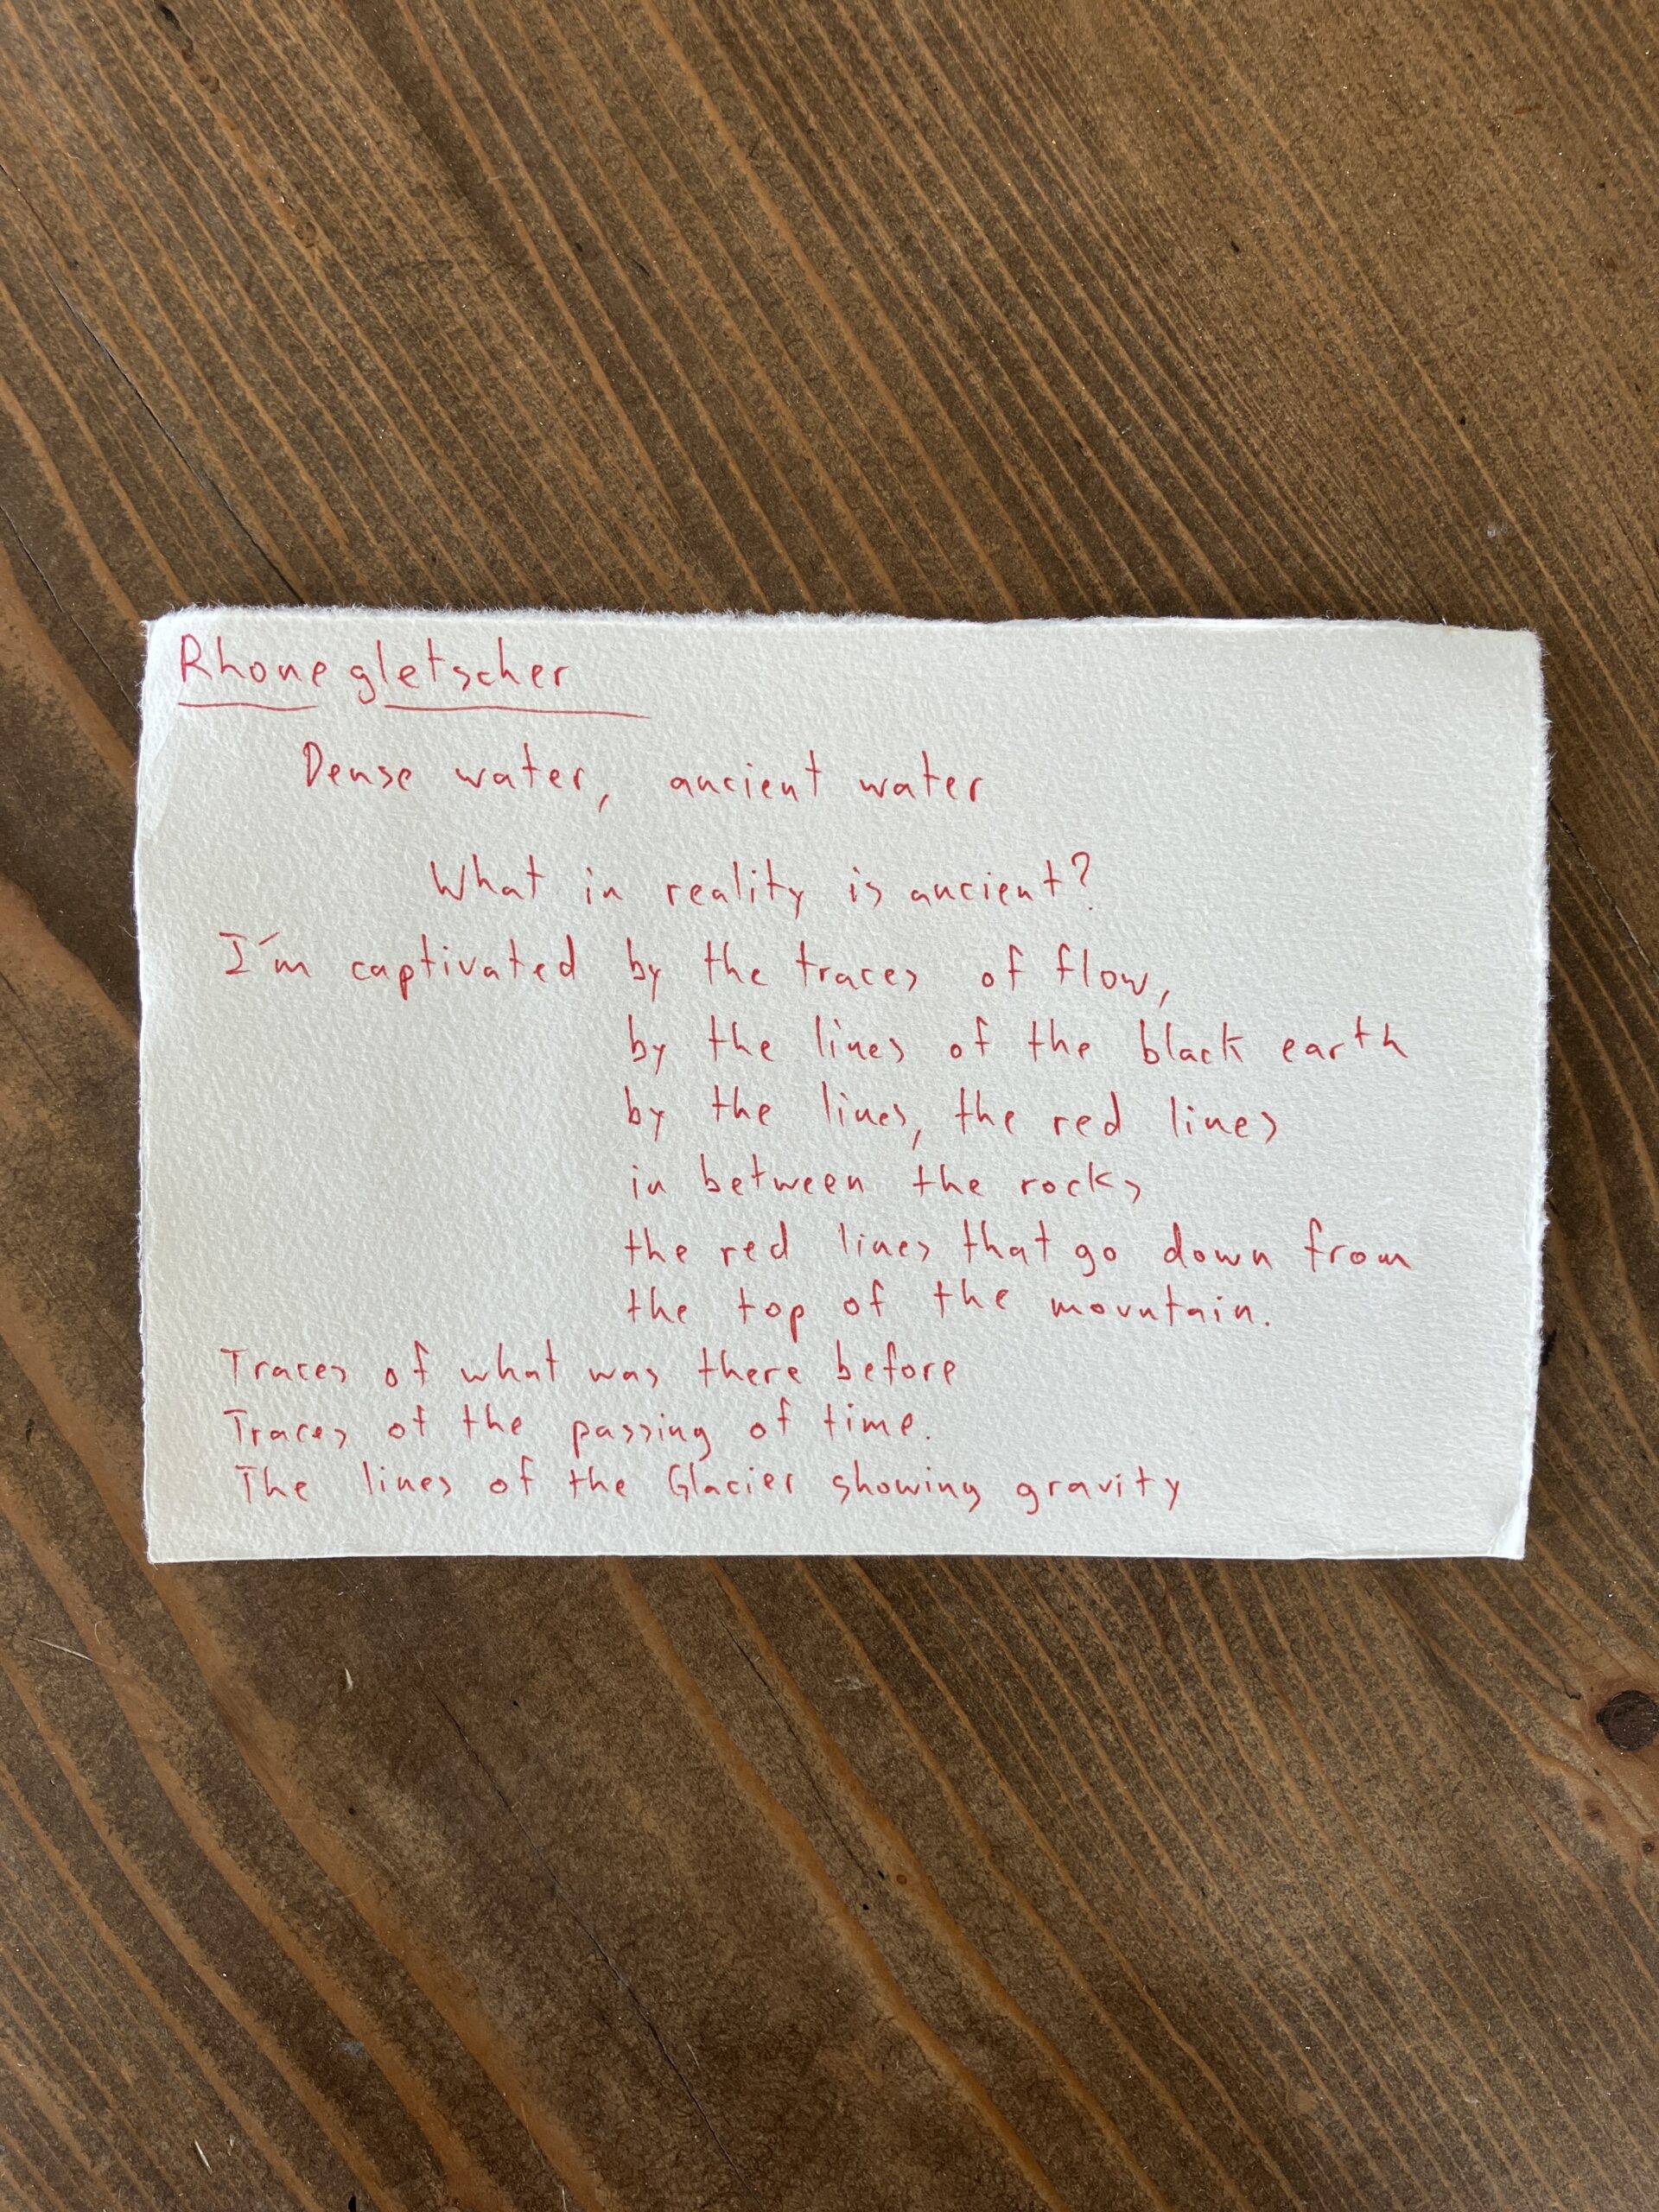 Rhonegletscher
Dense water, ancient water
What in reality is ancient?
I'm captivated by the traces of flow,
by the lines of the black earth
by the lines, the red lines
in between the rocks
the red lines that go down from
the top of the mountain.
Traces of what was there before
Traces of the passing of time.
The lines of the Glacier showing gravity